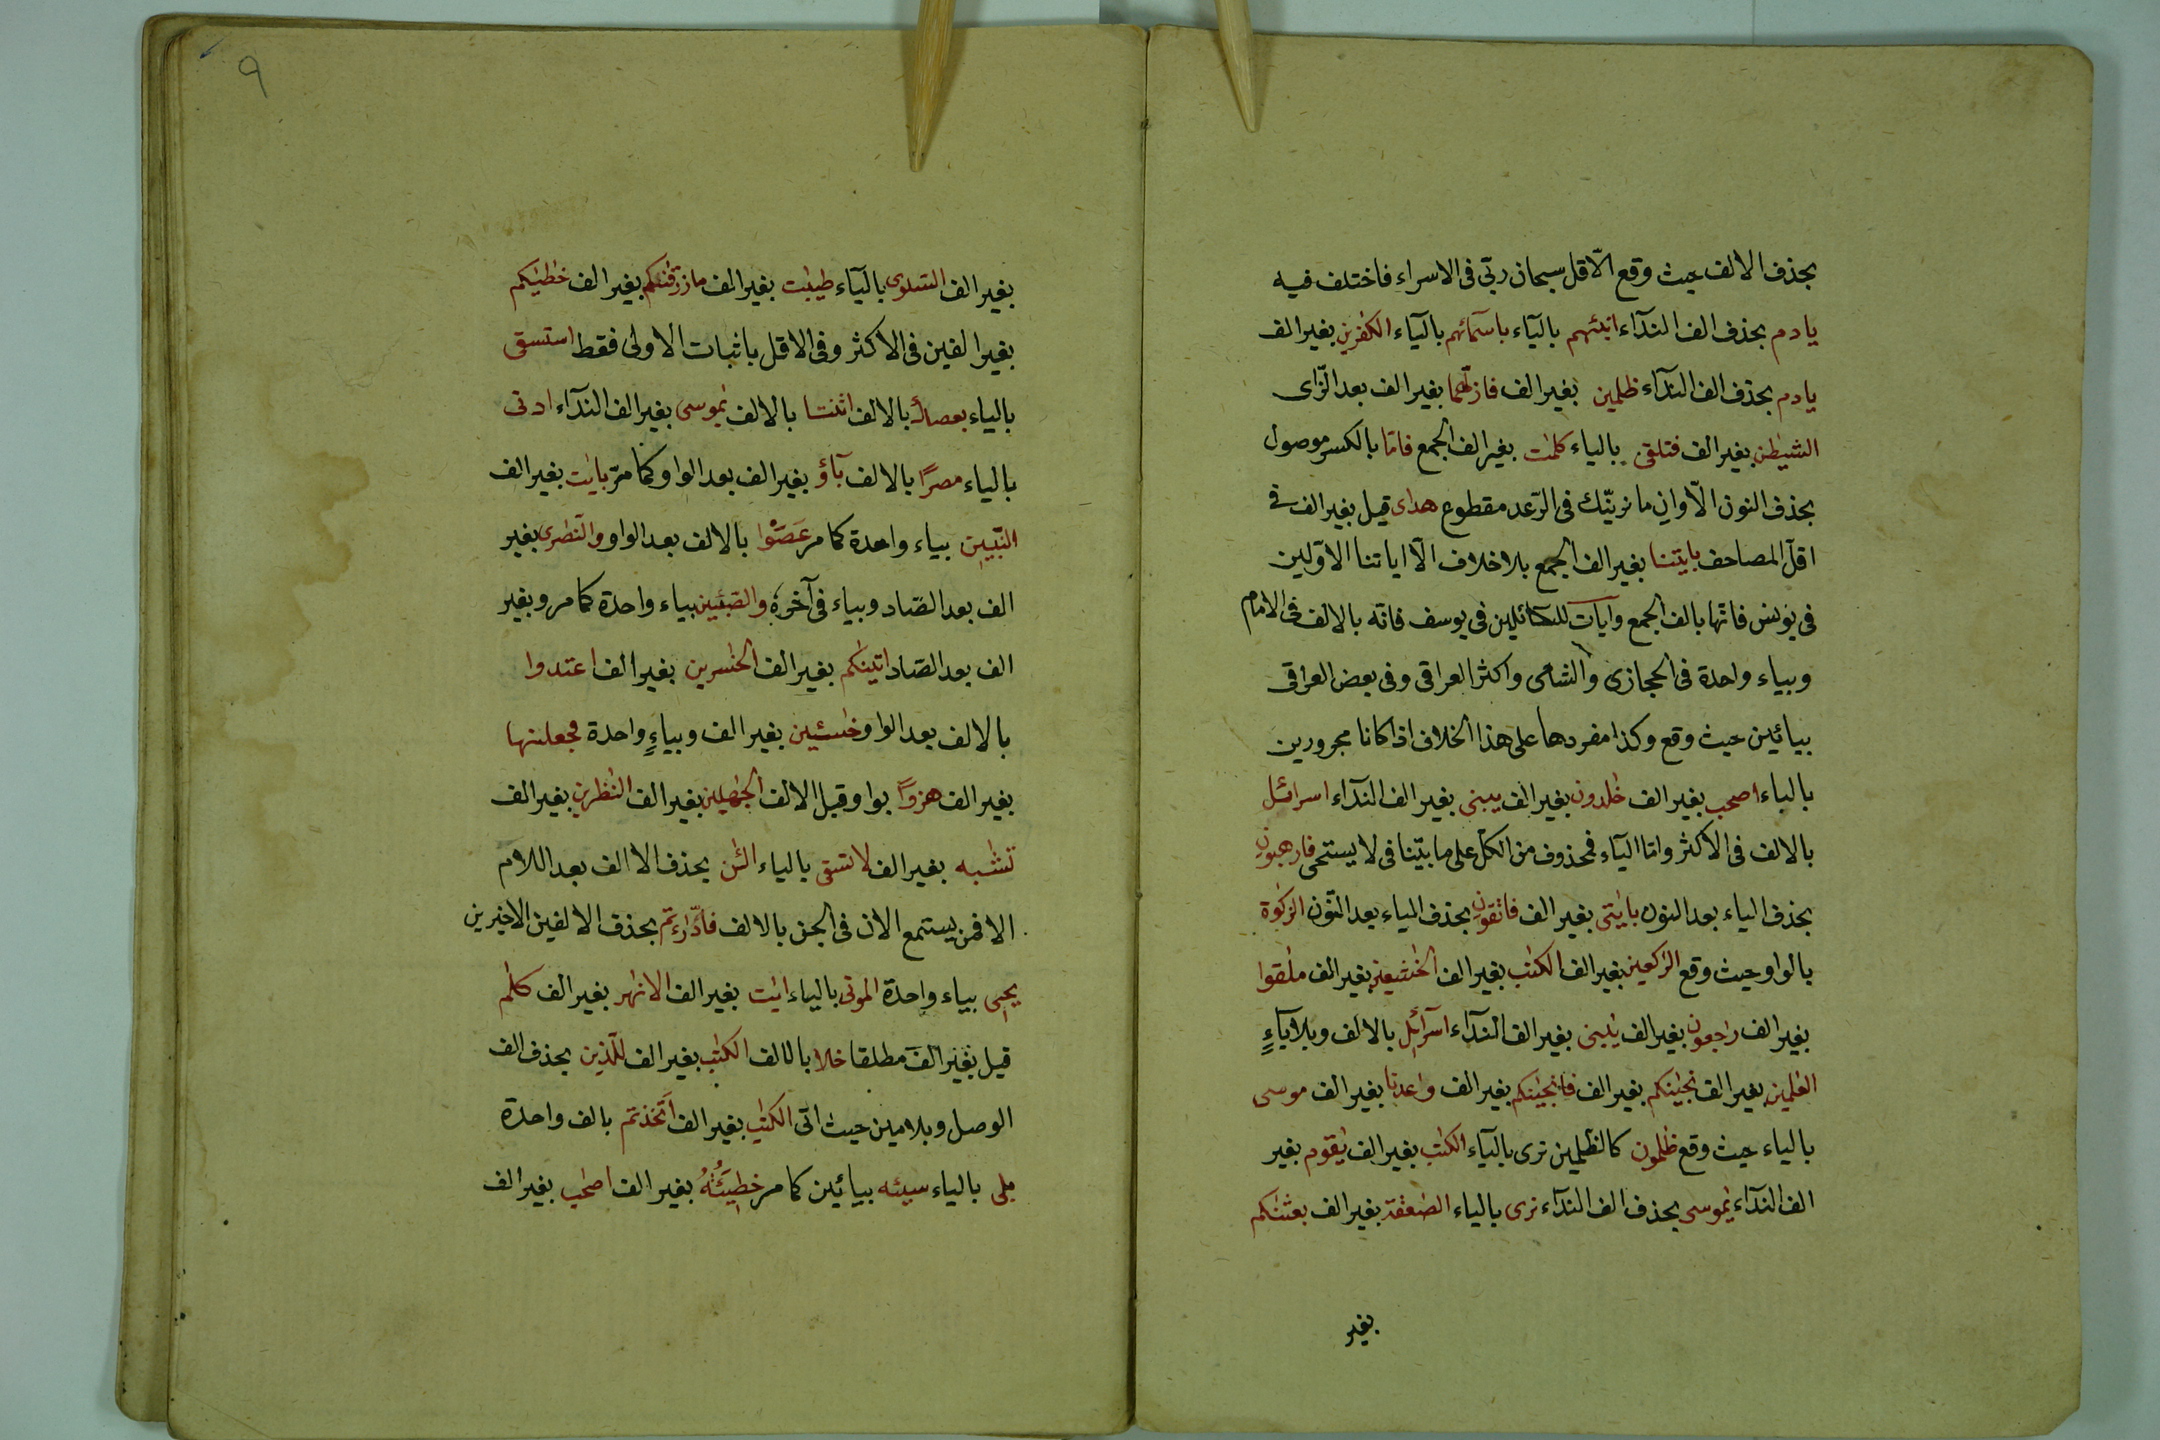 بحذف الالف حيث وقع الّا قل سبحان ربّي في الاسراء فاختلف فيه
يادم بحذف الف الندآء انبئهم بالياء باسمائهم بالياء الكفرين بغير الف
يادم بحذف الف الندآء ظلمين بغير الف فازلّهما بغير الف بعد الزّاى
الشيطن بغير الف فتلقى بالياء كلمت بغير الف الجمع فامّا بالكسر موصول
بحذف النون الّا وان ما نرينّك في الرّعد مقطوع هداى قيل بغير الف في
اقلّ المصاحف بايتنا بغير الف الجمع بلا خلاف الّا اياتنا الاوّلين
في يونس فانّها بالف الجمع وآيات للسّائلين في يوسف فانّه بالالف في الامام
وبياء واحدة في الحجازى والشامى واكثر العراقى وفي بعض العراقى
بيائين حيث وقع وكذا مفردها على هذا الخلاف اذا كانا مجرورين
بالباء اصحب بغير الف خلدون بغير الف يبنى بغير الف الندآء اسرائل
بالالف في الاكثر وامّا الياء فمحذوف من الكلّ على ما بيّنا في لا يستحى فارهبون
بحذف الياء بعد النون بايتى بغير الف فاتقون بحذف الياء بعد النّون الزكوة
بالواو حيث وقع الركعين بغير الف الكتب بغير الف الخشعين بغير الف ملقوا
بغير الف راجعون بغير الف يبنى بغير الف الندآء اسرآئل بالالف وبلا ياءٍ
العلمين بغير الف نجينكم بغير الف فانجينكم بغير الف واعدنا بغير الف موسى
بالياء حيث وقع ظلمون كالظلمين نرى بالياء الكتب بغير الف يقوم بغير
الف الندآء يموسى بحذف الف الندآء نرى بالياء الصعقة بغير الف بعثنكم
بغير
٩
بغير الف السّلوى بالياء طيبت بغير الف ما رزقنكم بغير الف خطيكم
بغير الفين في الاكثر وفي الاقل باثبات الاولى فقط استسقى
بالياء بعصاك بالالف اثنتا بالالف يموسى بغير الف الندآء ادنى
بالياء مصرًا بالالف بآؤ بغير الف بعد الواو كما مرّ بايت بغير الف
النّبيين بياء واحدة كما مر عَصَوْا بالالف بعد الواو والنّصرى بغير
الف بعد الصّاد وبياء في آخره والصّبئين بياء واحدة كما مر وبغير
الف بعد الصّاد اتينكم بغير الف الخسرين بغير الف اعتدوا
بالالف بعد الواو خسئين بغير الف وبياءٍ واحدة فجعلنها
بغير الف هزوًا بواو قبل الالف الجهلين بغير الف النظرين بغير الف
تشبه بغير الف لا تسقى بالياء الئن بحذف الا الف بعد اللام
الا فمن يستمع الان في الجن بالالف فادّارءتم بحذف الالفين الاخيرين
يحيى بياء واحدة الموتى بالياء ايت بغير الف الانهر بغير الف كلم
قيل بغير الف مطلقا خلا بالالف الكتب بغير الف للّذين بحذف الف
الوصل وبلامين حيث اتى الكتب بغير الف اتّخذتم بالف واحدة
بلى بالياء سيئه بيائين كما مر خطيئته بغير الف اصحب بغير الف